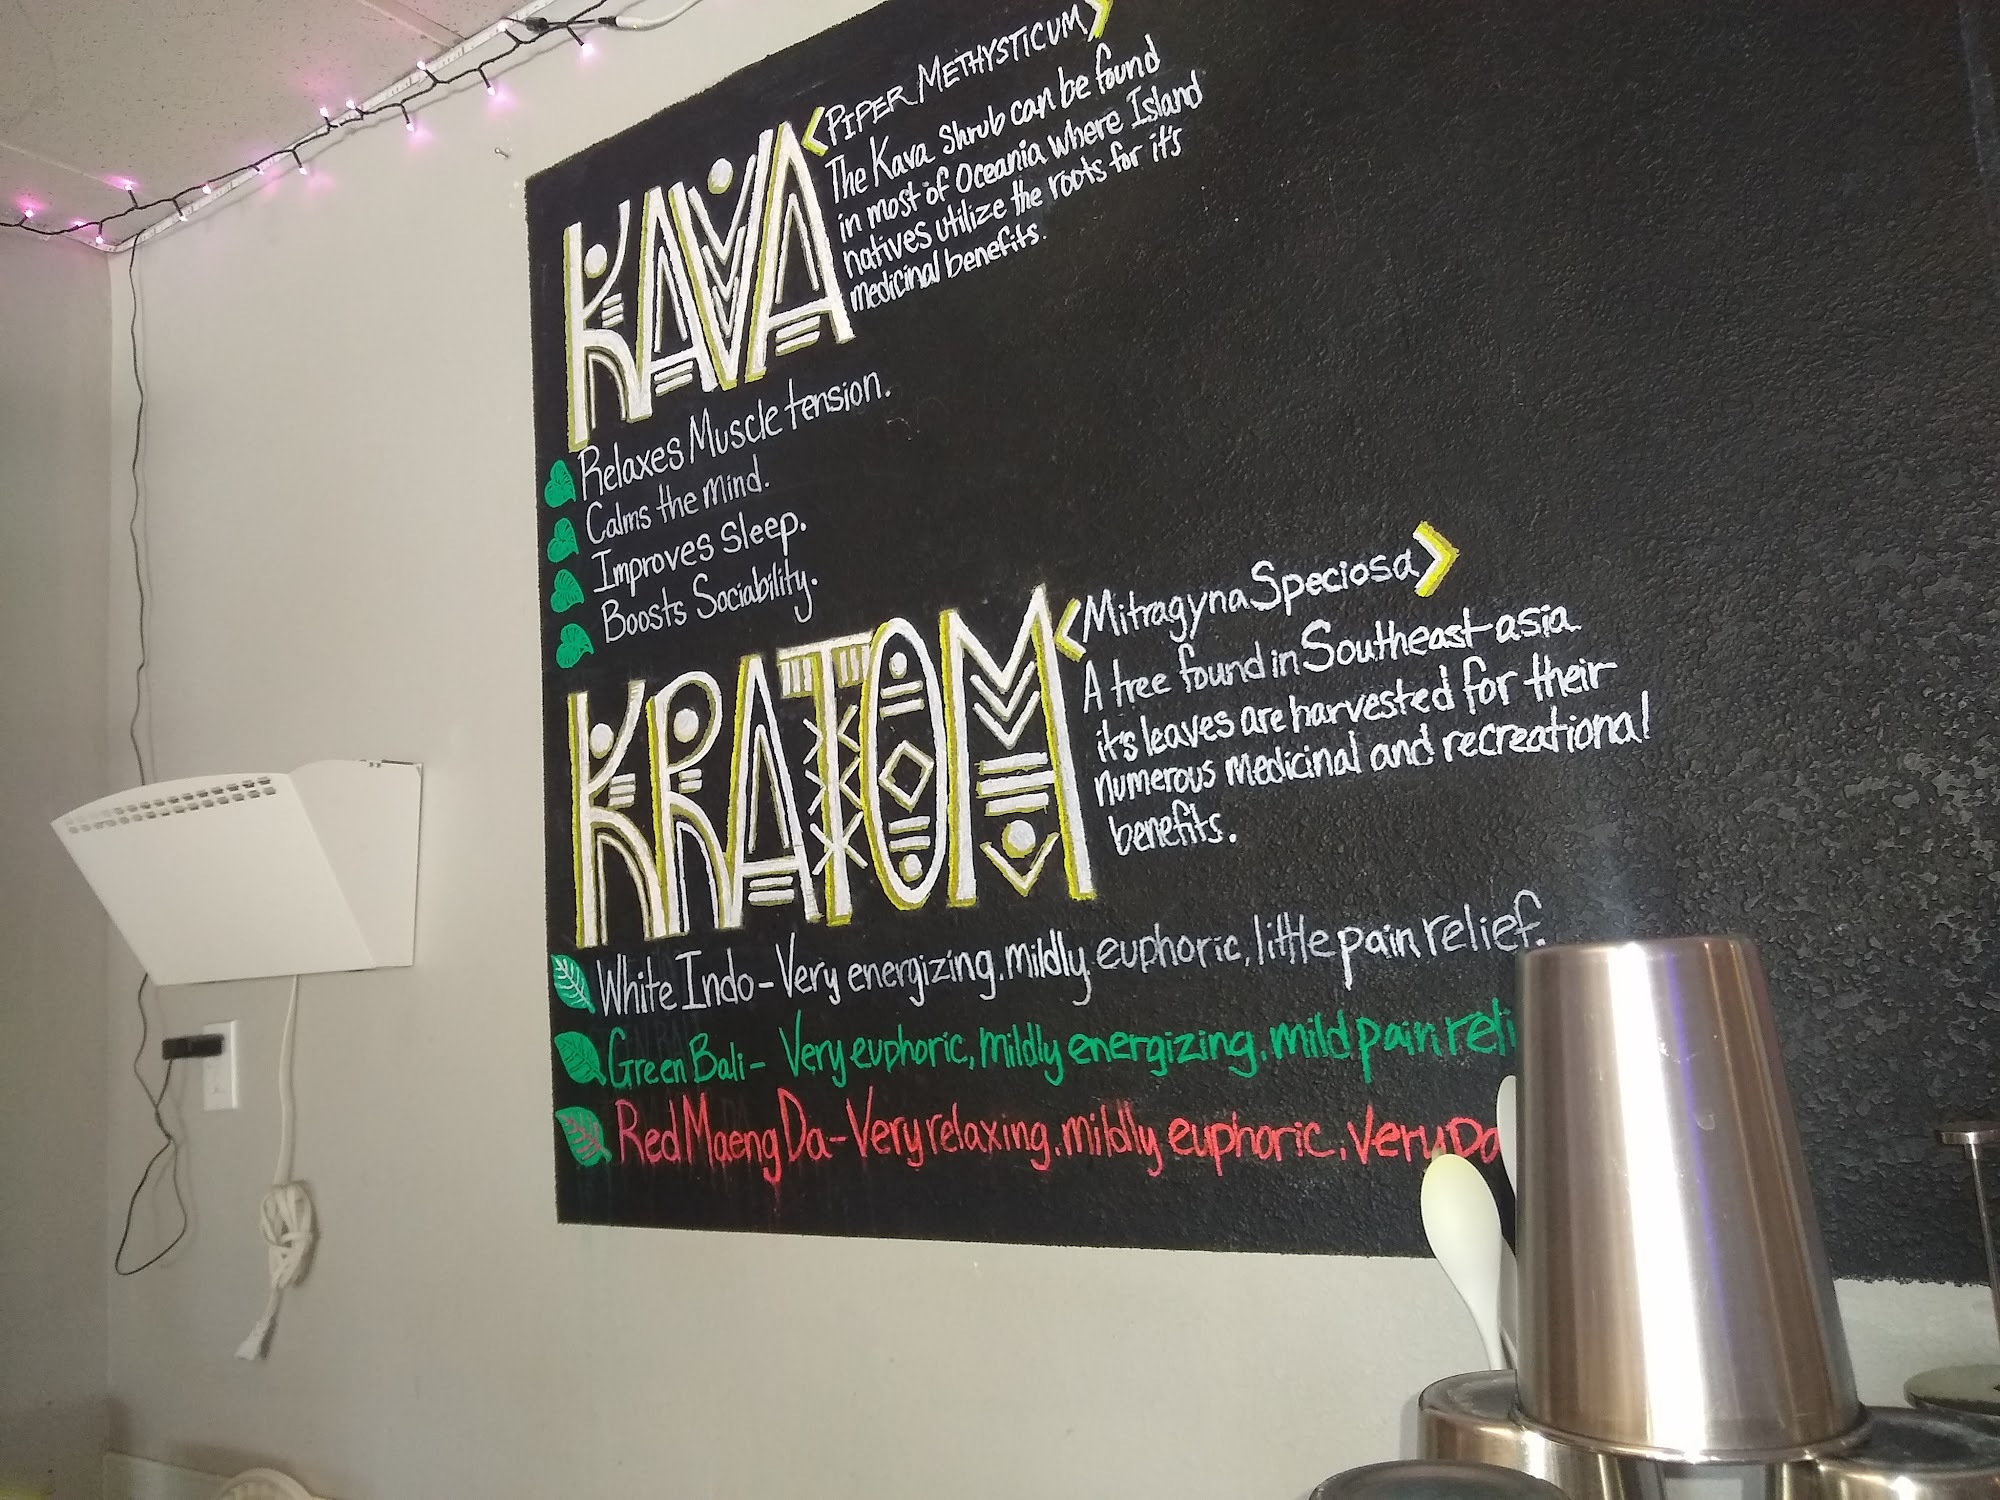 KAVA
<PIPER METHYSTICUM>
The Kava Shrub can be found
in most of Oceania where Island
natives utilize the roots for it's
medicinal benefits.
Relaxes Muscle tension.
Calms the mind.
Improves Sleep.
Boosts Sociability.
KRATOM
<Mitragyna Speciosa>
A tree found in Southeast asia
it's leaves are harvested for their
numerous medicinal and recreational
benefits.
White Indo - Very energizing. mildly euphoric, little pain relief.
Green Bali - Very euphoric, mildly energizing. mild pain reli
Red Maeng Da - Very relaxing. mildly euphoric. Very